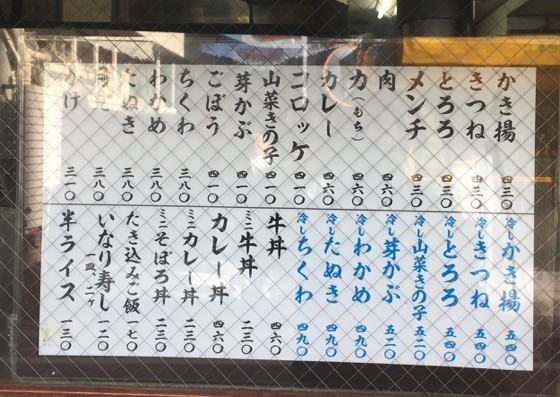 かき揚 四三〇
きつね 四三〇
とろろ 四三〇
メンチ 四三〇
肉 四六〇
力(もち) 四六〇
カレー 四六〇
コロッケ 四一〇
山菜きの子 四一〇
芽かぶ 四一〇
ごぼう 四一〇
ちくわ 三八〇
わかめ 三八〇
たぬき 三八〇
月見 三八〇
かけ 三一〇
冷しかき揚 五四〇
冷しきつね 五四〇
冷しとろろ 五四〇
冷し山菜きの子 五二〇
冷し芽かぶ 五二〇
冷しわかめ 四九〇
冷したぬき 四九〇
冷しちくわ 四九〇
牛丼 四六〇
ミニ牛丼 二三〇
カレー丼 四六〇
ミニカレー丼 二三〇
ミニそぼろ丼 二三〇
たき込みご飯 一七〇
いなり寿し 一皿、二ケ 一二〇
半ライス 一三〇